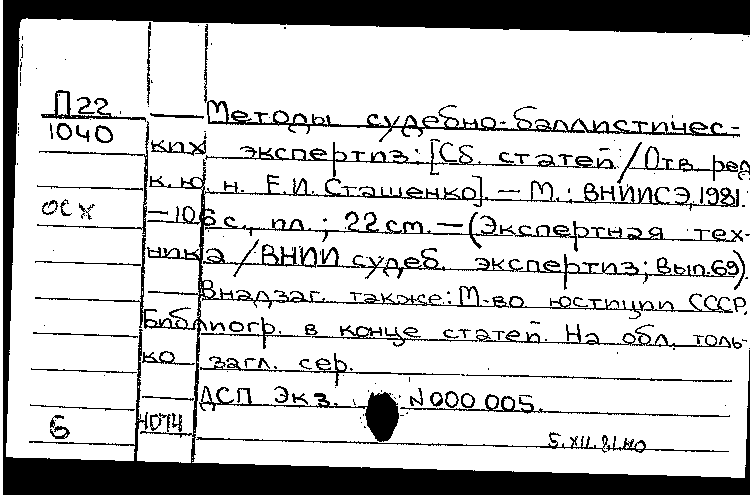 П22
1040
Методы судебно-баллистичес-
ких экспертиз: [Сб. статей / Отв. ред.
к. ю. н. Е.И. Сташенко]. — М.: ВНИИСЭ, 1981.
осх
— 106 с., ил.; 22 см. — (Экспертная тех-
ника / ВНИИ судеб. экспертиз; Вып. 69).
Внадзаг. также: М-во юстиции СССР.
Библиогр. в конце статей. На обл. толь-
ко загл. сер.
ДСП Экз. N 000 005.
6
5.XII.81.